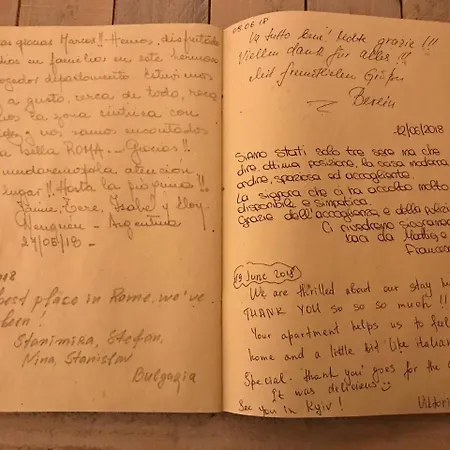 as gracias Marcos!! Hemos disfrutado
dias en familia en este hermoso
acogedor departamento. Estuvimos
a gusto, cerca de todo,
la zona
y nos vamos encantados
la bella ROMA - Gracias!!
la atención
lugar!! Hasta la próxima!!
Jaime, Tere, Isabel y Eloy.
Neuquén - Argentina
27/05/18 -
018
best place in Rome, we've
been!
Stanimira, Stefan,
Nina, Stanislav
Bulgaria
05.06.18
Va tutto bene! Molte grazie!!!
Vielen dank für alles!!!
Mit freundlichen Grüßen
12/06/2018
SIAMO STATI SOLO TRE SERE MA CHE
DIRE, OTTIMA POSIZIONE, LA CASA MODERNA,
SPAZIOSA ED ACCOGLIENTE.
LA SIGNORA CHE CI HA ACCOLTO MOLTO
DISPONIBILE E SIMPATICA.
GRAZIE DELL'ACCOGLIENZA E DELLA PULIZIA
CI RIVEDREMO
BACI DA
FRANCESCO
19 June 2018
We are thrilled about our stay
THANK YOU so so so much!!!
Your apartment helps us to feel
home and a little bit like italian
Special - 'thank you' goes for the
It was delicious
See you in Kyiv!
Viktori